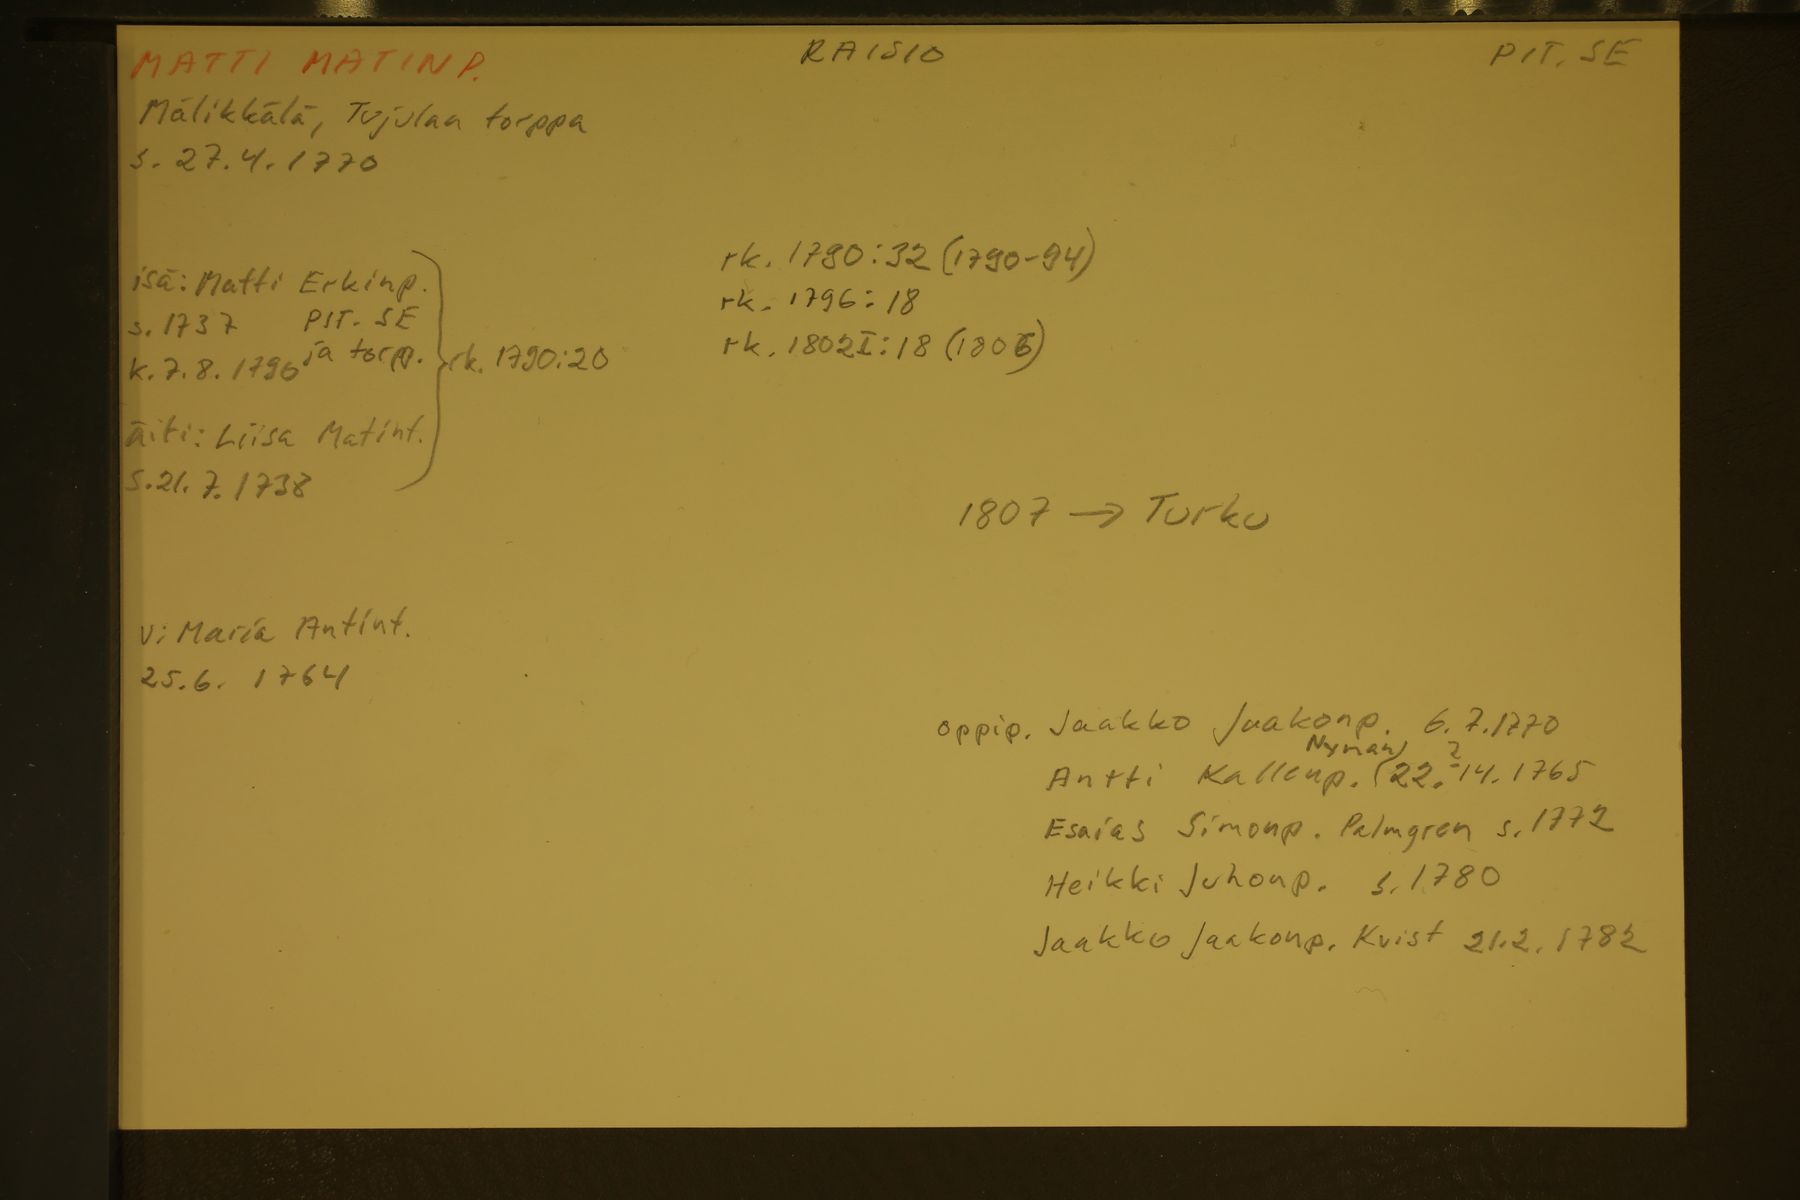 MATTI MATINP. RAISIO PIT. SE
Mälikkälä, Tujulan torppa
s. 27.4.1770
rk. 1790:32 (1790-94)
rk. 1796:18
rk. 1802I:18 (1805)
isä: Matti Erkinp.
s. 1737 PIT. SE
k. 7.8.1796 ja torpp.
rk. 1790:20
äiti: Liisa Matint.
s. 21.7.1738
1807 → Turku
v: Maria Antint.
25.6. 1764
oppip. Jaakko Jaakonp. 6.7.1770
Nyman
Antti Kallenp. (22.?14.1765
Esaias Simonp. Palmgren s. 1772
Heikki Juhonp. s. 1780
Jaakko Jaakonp. Kvist 21.2.1782